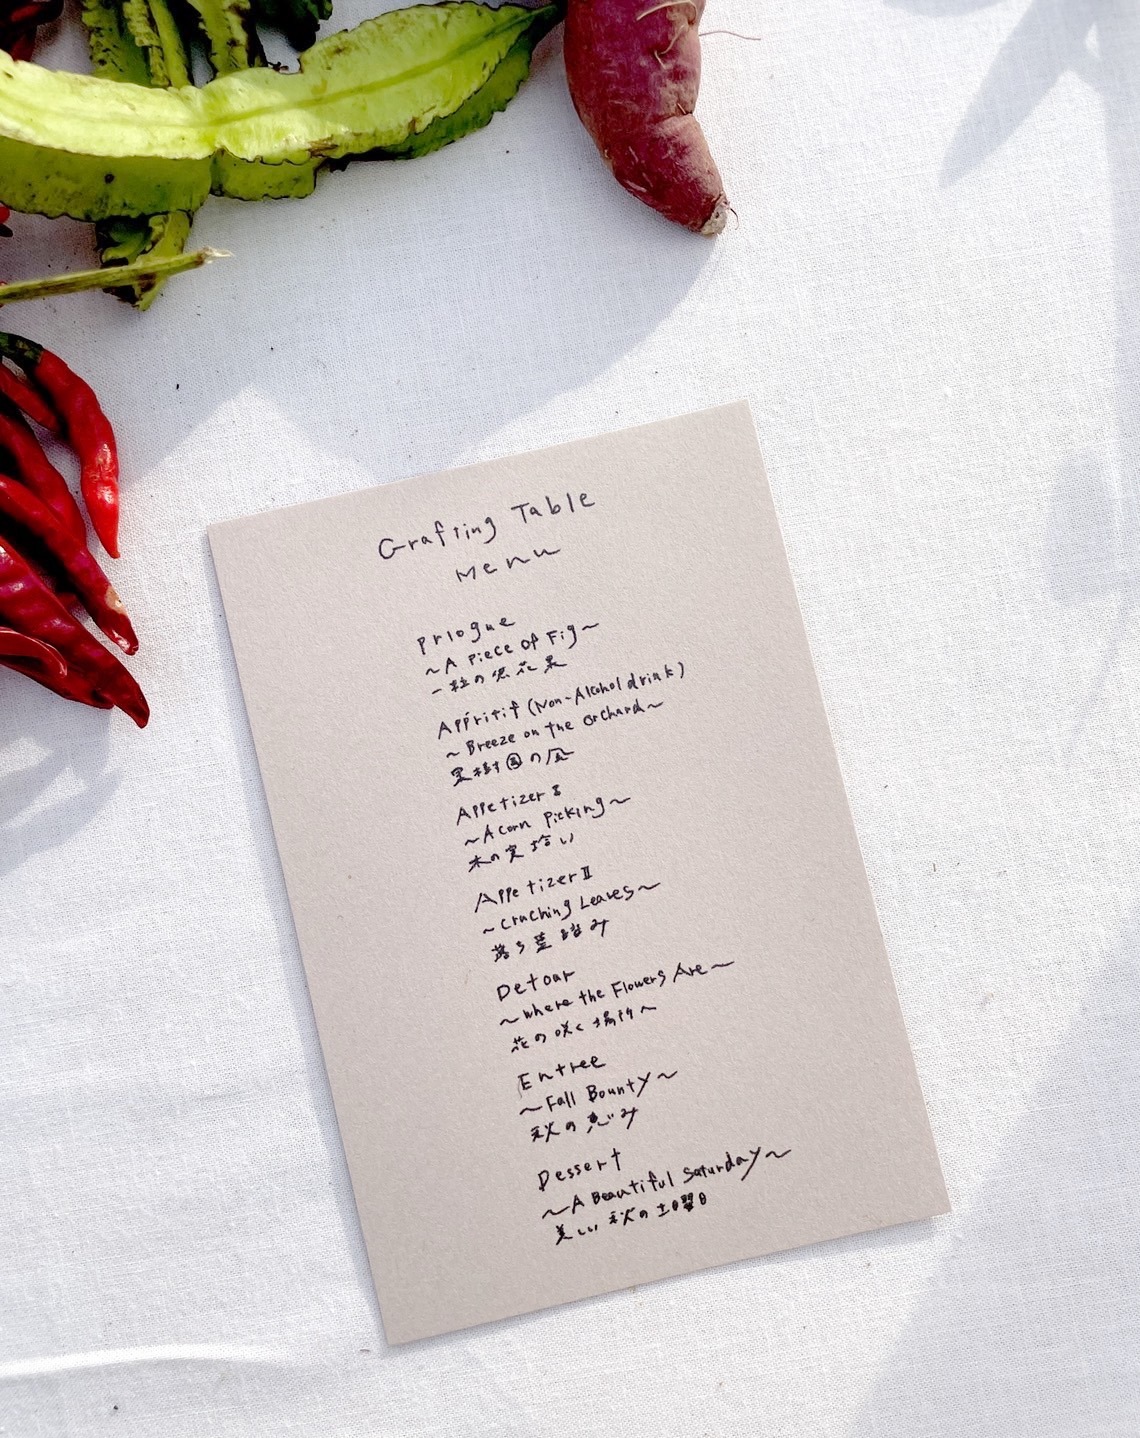 Grafting Table
Menu
prlogue
~A Piece of Fig~
一粒の無花果
Appritif (Non-Alcohol drink)
~Breeze on the Orchard~
果樹園の風
Appetizer I
~Acorn Picking~
木の実拾い
Appetizer II
~Cruching Leaves~
落ち葉踏み
Detour
~Where the Flowers Are~
花の咲く場所へ
Entree
~Fall Bounty~
秋の恵み
Dessert
~A Beautiful Saturday~
美しい秋の土曜日